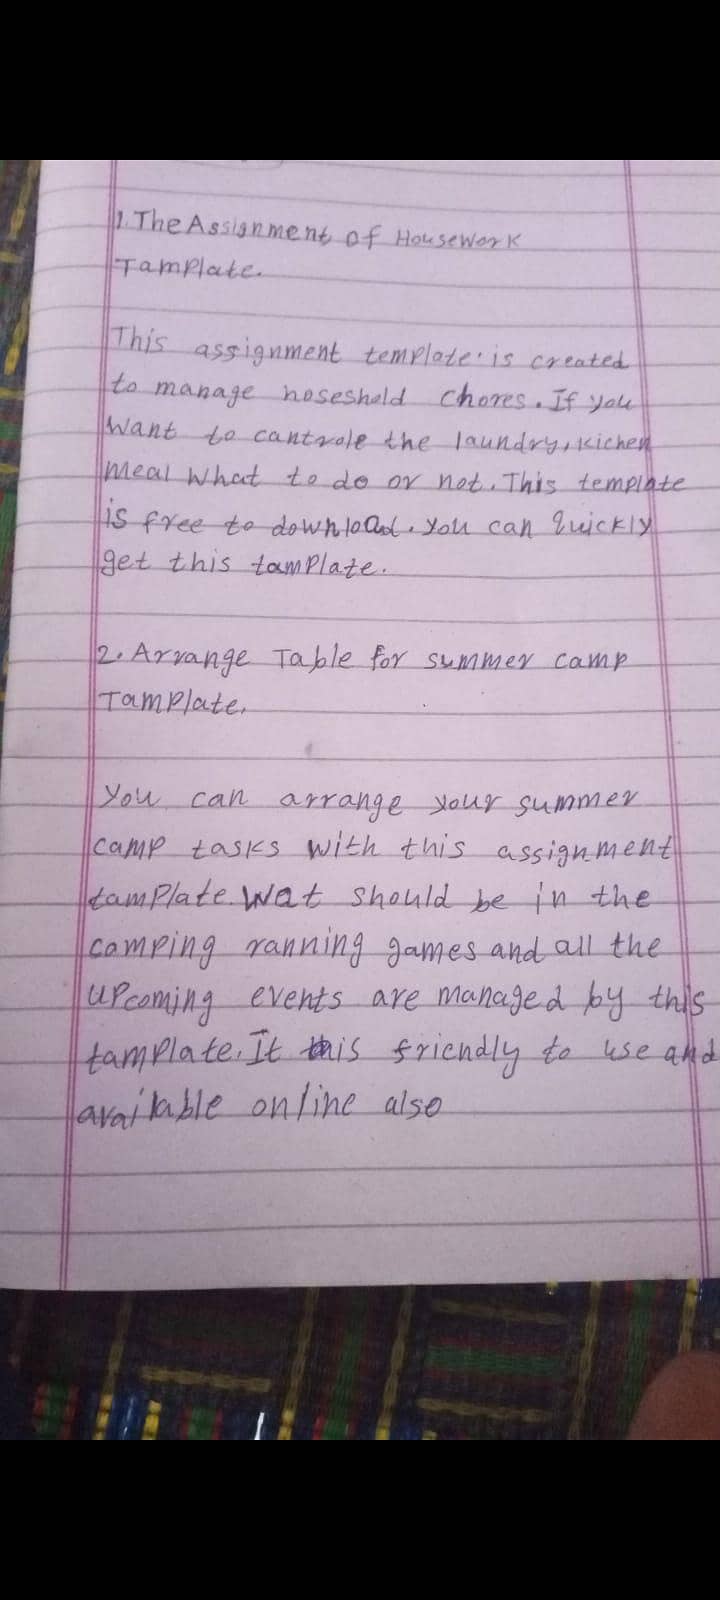 1. The Assignment of Housework
Tamplate.
This assignment template is created
to manage hoseshold chores. If you
want to cantrole the laundry, kichen
meal what to do or not. This template
is free to download. you can quickly
get this tamplate.
2. Arrange Table for summer camp
Tamplate.
You can arrange your summer
camp tasks with this assignment
tamplate. Wat should be in the
camping ranning games and all the
upcoming events are managed by this
tamplate. It is friendly to use and
available online also